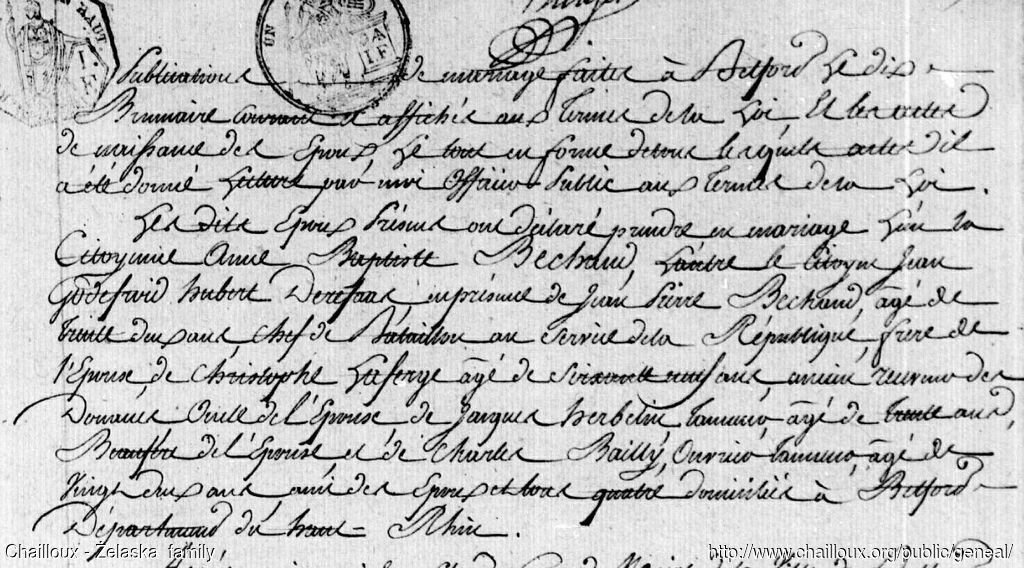 Publications de mariage faites à Belford Le dix
Brumaire courant et affichés aux termes de la Loi, Et les actes
de naissance des Epoux, Le tout en forme de tous lesquels actes il
a été donné Lecture par moi Officier Public aux termes de la Loi.
Les dits Epoux Présens ont déclaré prendre en mariage L'un la
Citoyenne Anne Baptiste Bechaud, L'autre le Citoyen Jean
Godefroid hubert en présence de Jean Pierre Bechaud, âgé de
trente deux ans Chef de Bataillon au Service de la République, frère de
l'Epouse, de Christophe Laferge âgé de Soixante neuf ans ancien receveur des
Douanes Oncle de l'Epouse, de Jacques herbelin tanneur âgé de trente ans,
Beaufrere de l'Epouse et de Charles Bailly, Ouvrier tanneur, âgé de
Vingt deux ans ami des Epoux et tous quatre domiciliés à Belford
Département du haut = Rhin.
Chailloux - Zelaska family
http://www.chailloux.org/public/geneal/